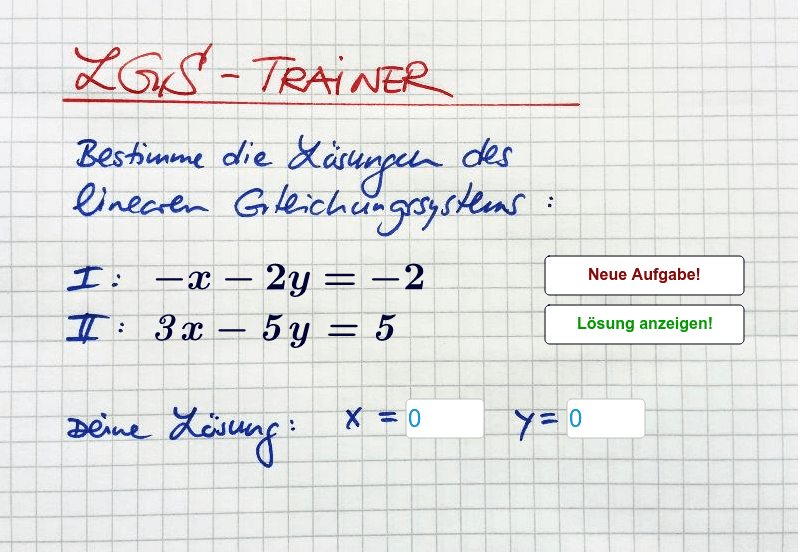 LGS - TRAINER
Bestimme die Lösungen des
linearen Gleichungssystems :
I : −x − 2y = −2
Neue Aufgabe!
II : 3x − 5y = 5
Lösung anzeigen!
Deine Lösung : x = 0 y = 0